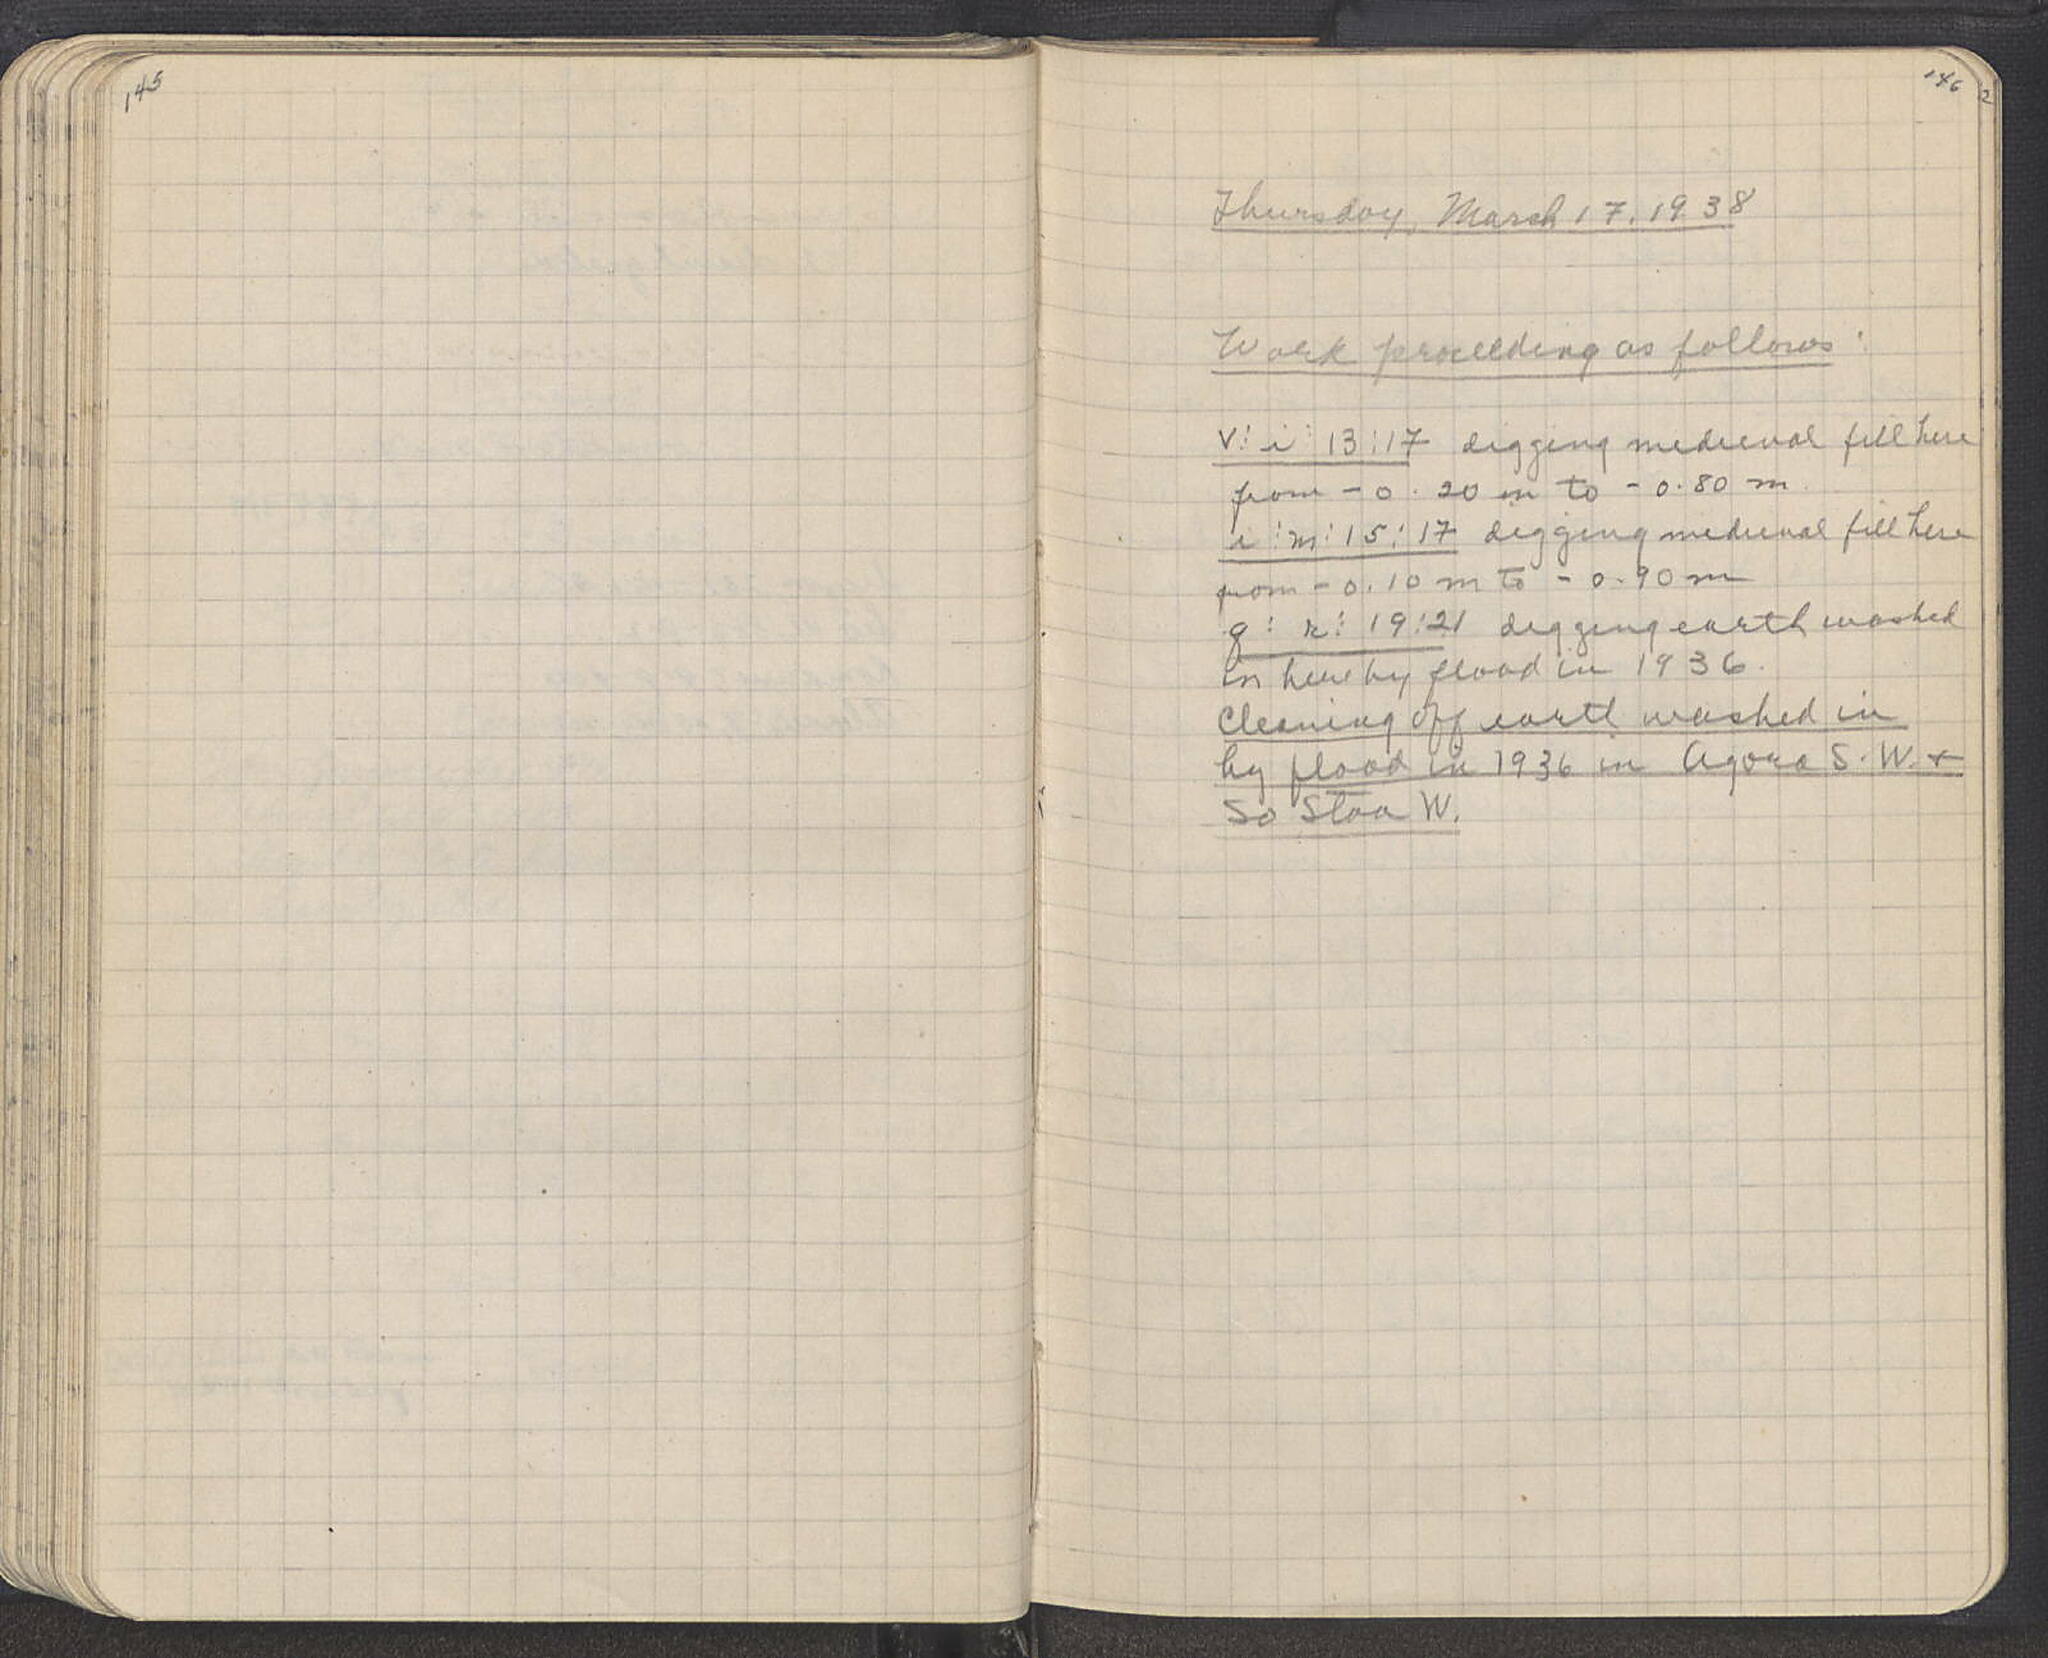 145
146
Thursday, March 17, 1938
Work proceeding as follows:
v: i: 13:17 digging medieval fill here
from -0.20 m to -0.80 m.
i:m:15:17 digging medieval fill here
from -0.10 m to -0.90 m
g: k: 19:21 digging earth washed
in here by flood in 1936.
Cleaning off earth washed in
by flood in 1936 in Agora S.W. +
So Stoa W.